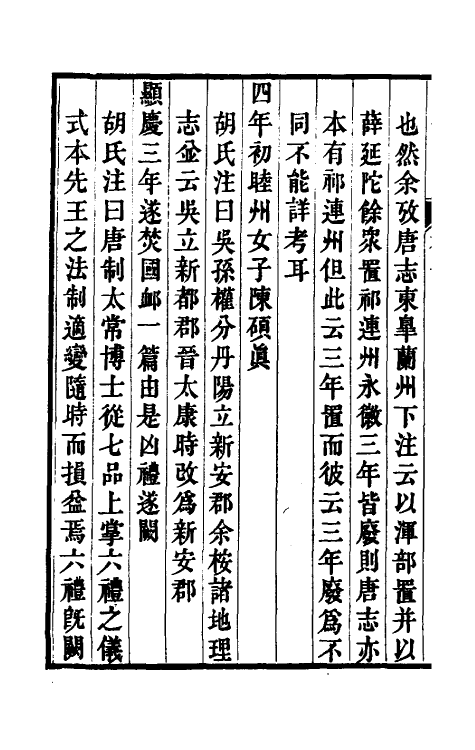 也然余攷唐志東皐蘭州下注云以渾部置并以
薛延陀餘衆置祁連州永徽三年皆廢則唐志亦
本有祁連州但此云三年置而彼云三年廢爲不
同不能詳考耳
四年初睦州女子陳碩眞
胡氏注曰吳孫權分丹陽立新安郡余桉諸地理
志並云吳立新都郡晉太康時改爲新安郡
顯慶三年遂焚國䘏一篇由是凶禮遂闕
胡氏注曰唐制太常博士從七品上掌六禮之儀
式本先王之法制適變隨時而損益焉六禮旣闕